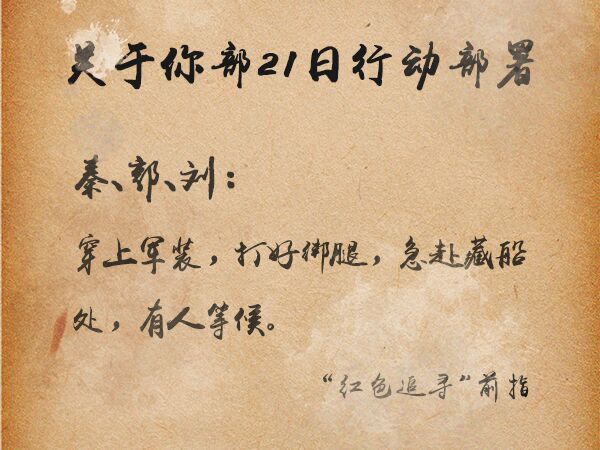 关于你部21日行动部署
秦、郭、刘：
穿上军装，打好绑腿，急赴藏船
处，有人等候。
“红色追寻”前指